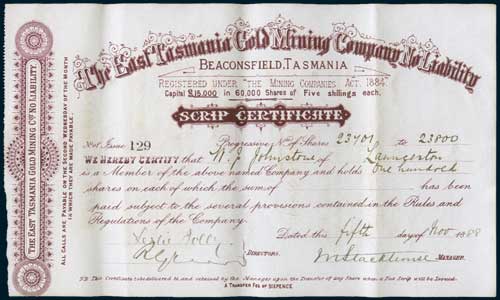 The East Tasmania Gold Mining Company No Liability
BEACONSFIELD, TASMANIA
REGISTERED UNDER THE MINING COMPANIES ACT. 1884.
Capital £15,000 in 60,000 Shares of Five shillings each.
SCRIP CERTIFICATE
No of Issue 129 Progressive Nos of Shares 23701 to 23800
WE HEREBY CERTIFY that W. J. Johnstone of Launceston
as a Member of the above named Company and holds One hundred
shares on each of which, the sum of has been
paid subject to the several provisions contained in the Rules and
Regulations of the Company.
Dated this fifth day of Nov 1888
Leslie
DIRECTORS.
MANAGER.
NB This Certificate to be delivered to and retained by the Manager upon the Transfer of any Share when a New Scrip will be Issued.
A TRANSFER FEE OF SIXPENCE
THE EAST TASMANIA GOLD MINING Co. NO LIABILITY.
ALL CALLS ARE PAYABLE ON THE SECOND WEDNESDAY OF THE MONTH
IN WHICH THEY ARE MADE PAYABLE.